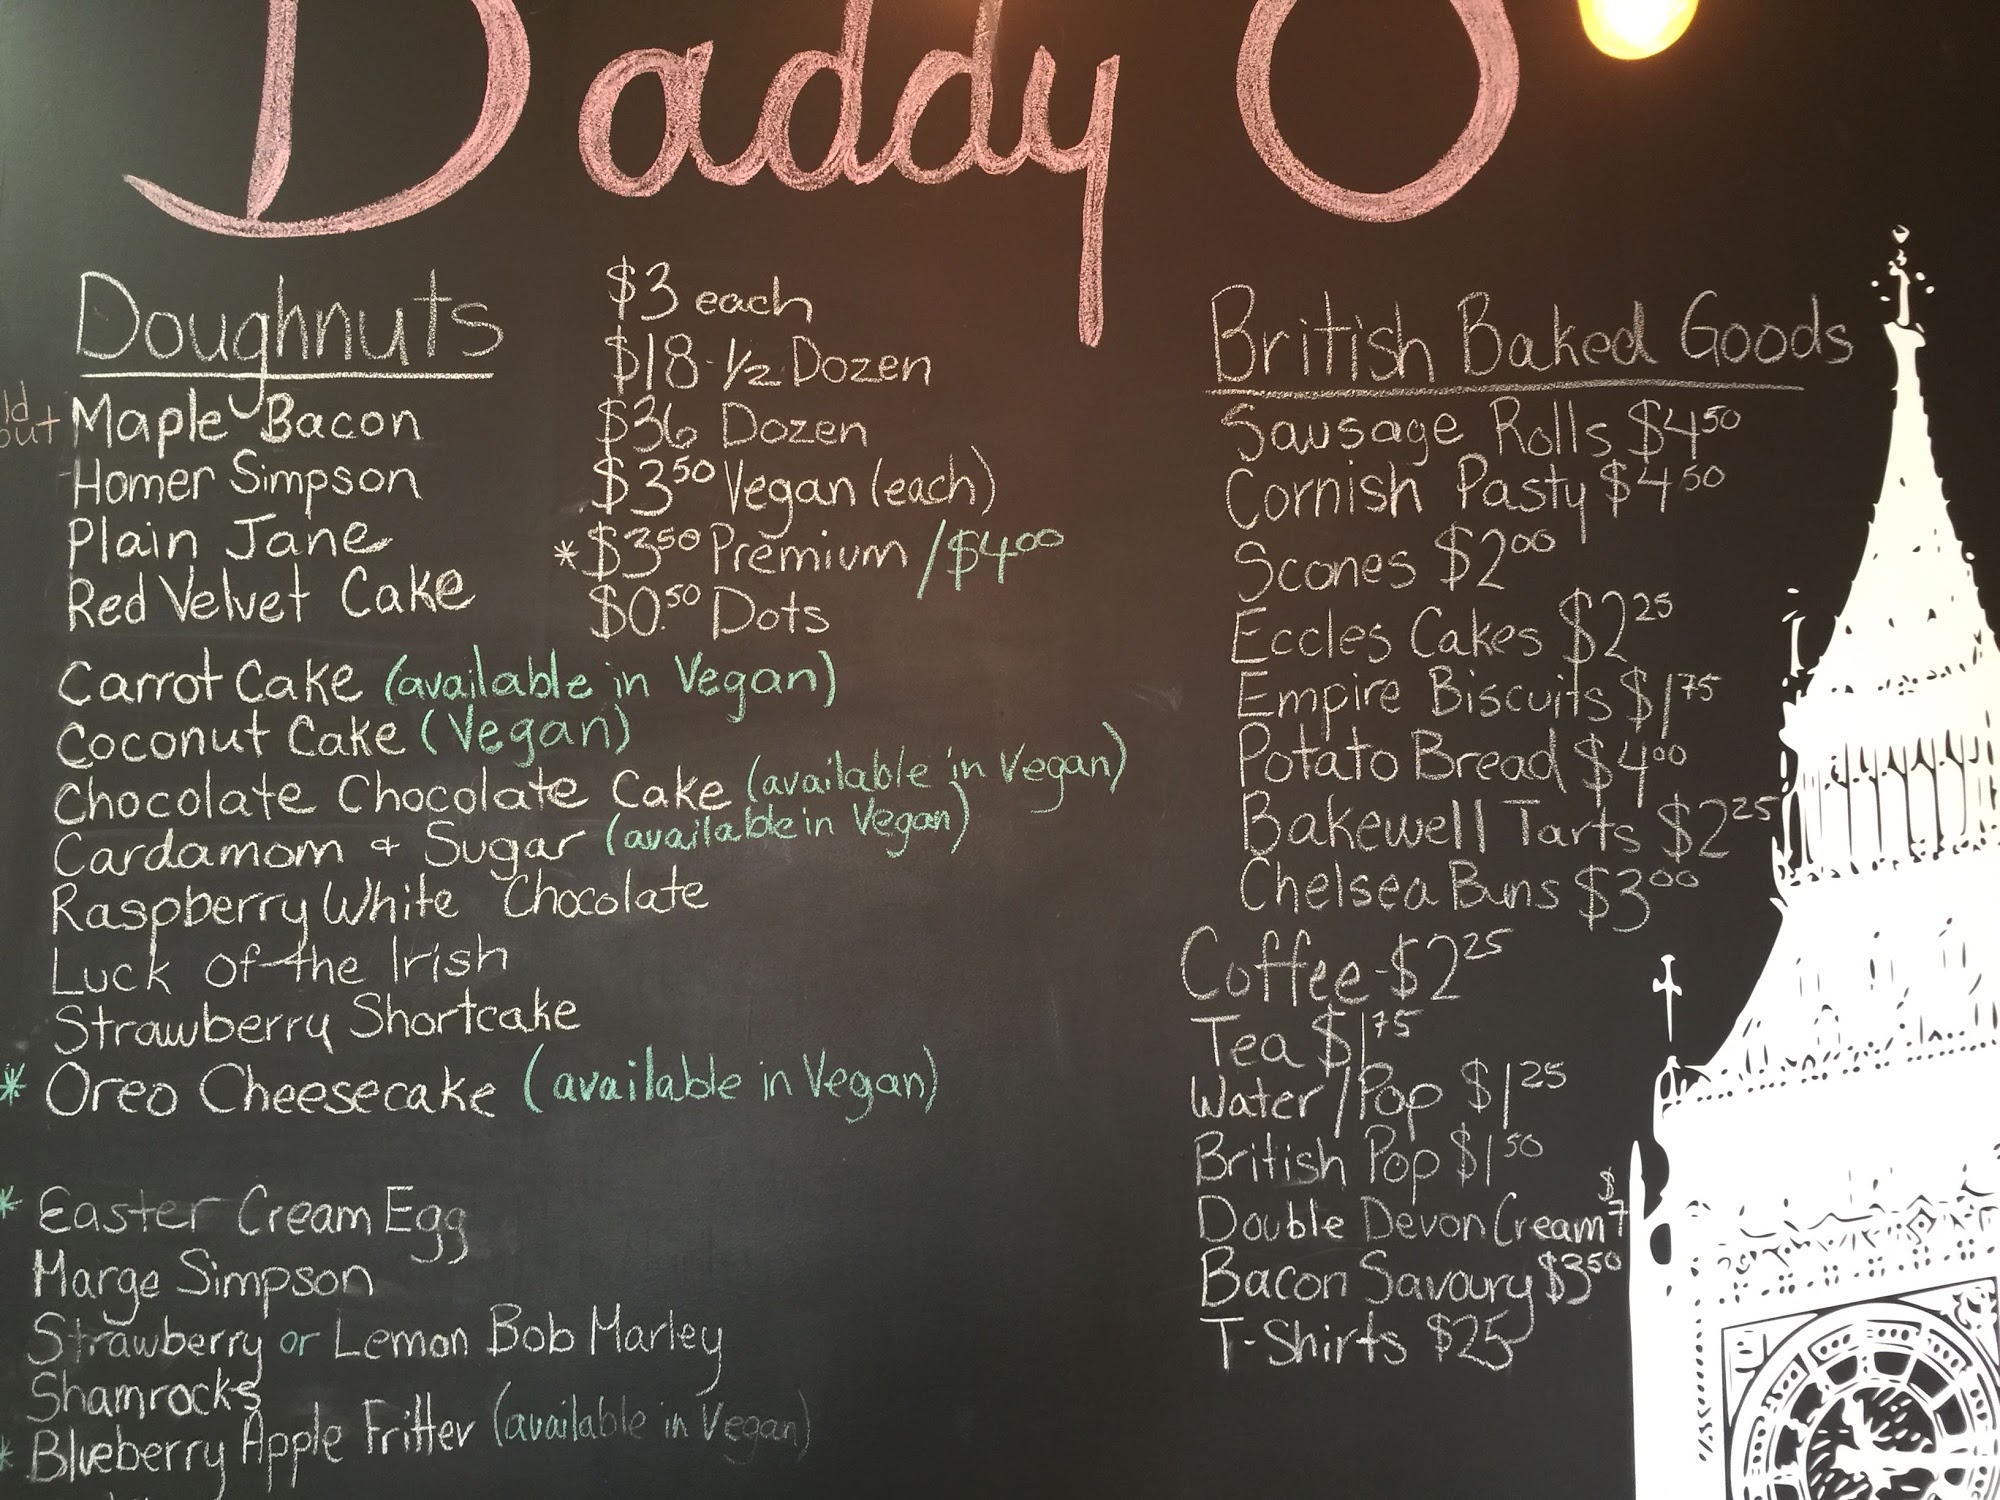 Daddy O
Doughnuts
Maple Bacon
Homer Simpson
Plain Jane
Red Velvet Cake
$3 each
$18-1/2 Dozen
$36 Dozen
$3.50 Vegan (each)
*$3.50 Premium /$4.00
$0.50 Dots
Carrot Cake (available in Vegan)
Coconut Cake (Vegan)
Chocolate Chocolate Cake (available in Vegan)
Cardamom + Sugar (available in Vegan)
Raspberry White Chocolate
Luck of the Irish
Strawberry Shortcake
* Oreo Cheesecake (available in Vegan)
* Easter Cream Egg
Marge Simpson
Strawberry or Lemon Bob Marley
Shamrocks
* Blueberry Apple Fritter (available in Vegan)
British Baked Goods
Sausage Rolls $4.50
Cornish Pasty $4.50
Scones $2.00
Eccles Cakes $2.25
Empire Biscuits $1.75
Potato Bread $4.00
Bakewell Tarts $2.25
Chelsea Buns $3.00
Coffee-$2.25
Tea $1.75
Water/Pop $1.25
British Pop $1.50
Double Devon Cream $7
Bacon Savoury $3.50
T-Shirts $25